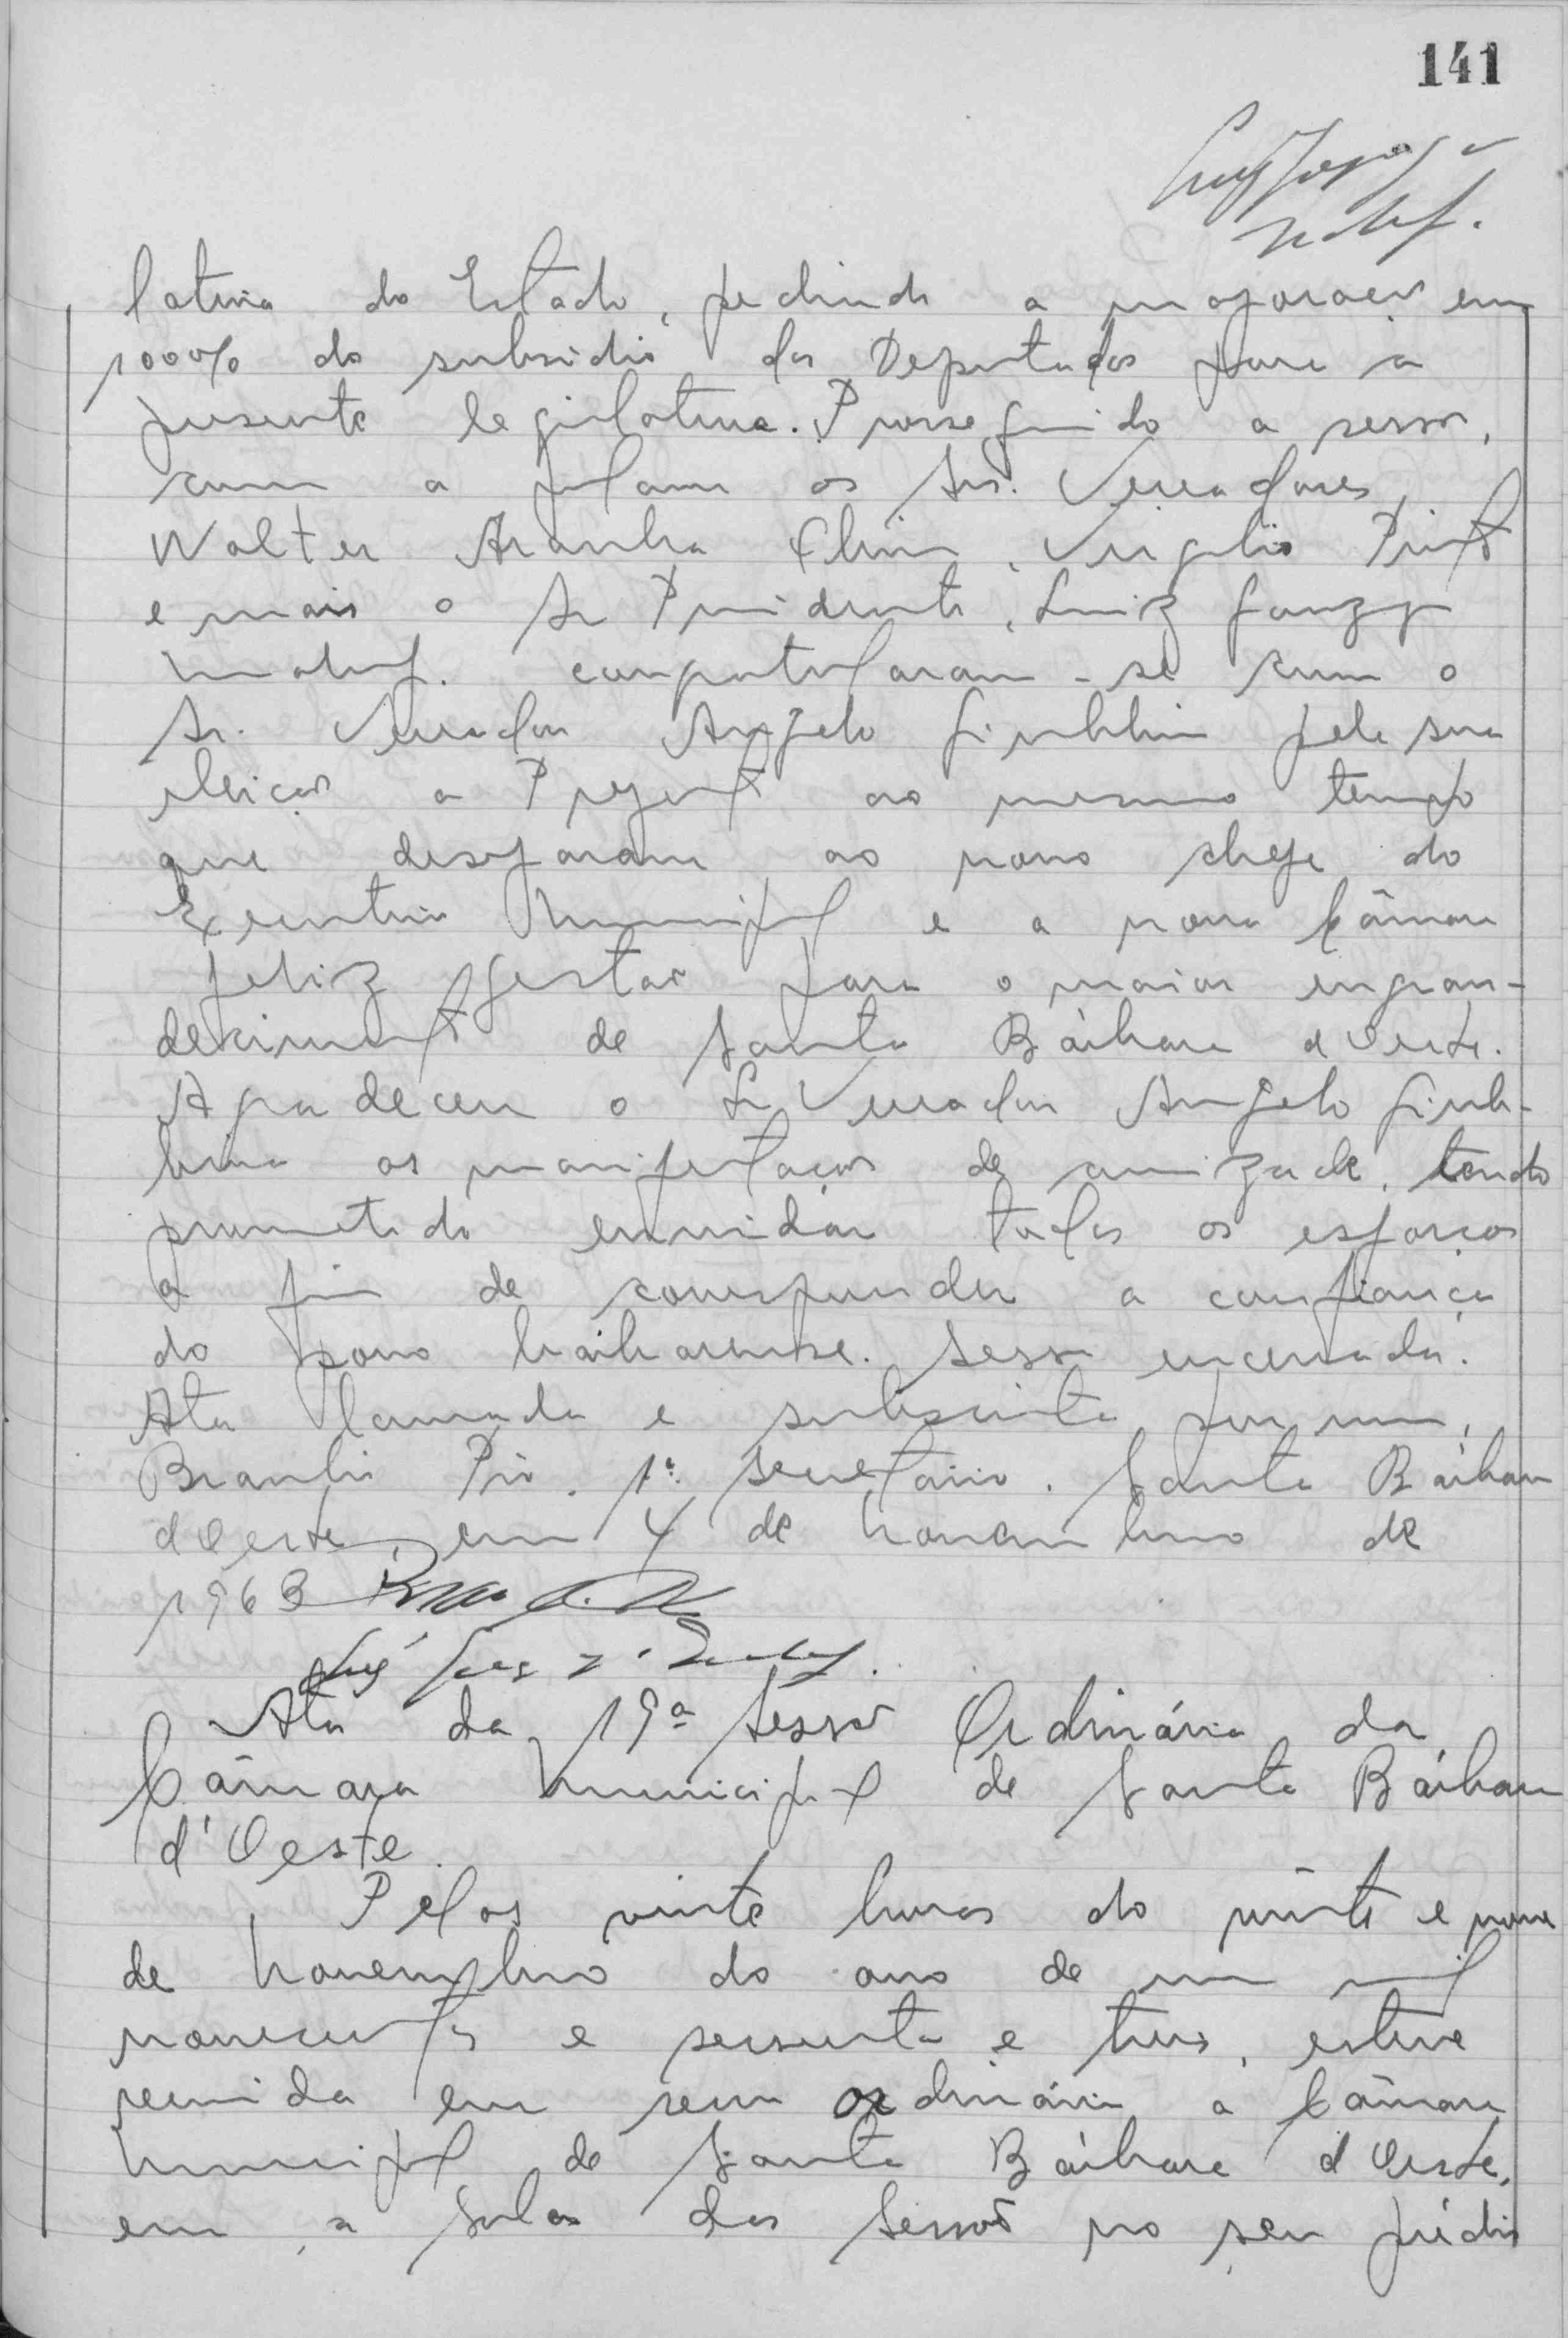 141
lativa do Estado, pedindo a majoração em
100% do subsidio dos Deputados para a
presente legislatura. Prosseguindo a sessão,
com a palavra os Srs. Vereadores
Walter Aranha Olivio, Virgilio Pinto
e mais o Sr Presidente, Luiz Fauzy
Maluf. congratularam-se com o
Sr. Vereador Angelo Giubbina pela sua
eleição a Prefeito ao mesmo tempo
que desejaram ao novo chefe do
Executivo Municipal e a nova Câmara
feliz gestão para o maior engran-
decimento de Santa Bárbara d'Oeste.
Agradeceu o Sr Vereador Angelo Giub-
bina as manifestações de amizade, tendo
prometido envidar todos os esforços
a fim de corresponder a confiança
do povo barbarense. Sessão encerrada.
Ata lavrada e subscrita por mim,
Braulio Pio. 1º Secretario. Santa Bárbara
d'Oeste, em 4 de Novembro de
1963
Ata da 19ª Sessão Ordinária da
Câmara Municipal de Santa Bárbara
d'Oeste.
Pelas vinte horas do vinte e nove
de Novembro do ano de um mil
novecentos e sessenta e tres, esteve
reunida em sessão ordinária a Câmara
Municipal de Santa Bárbara d'Oeste,
em a sala das Sessões no seu prédio